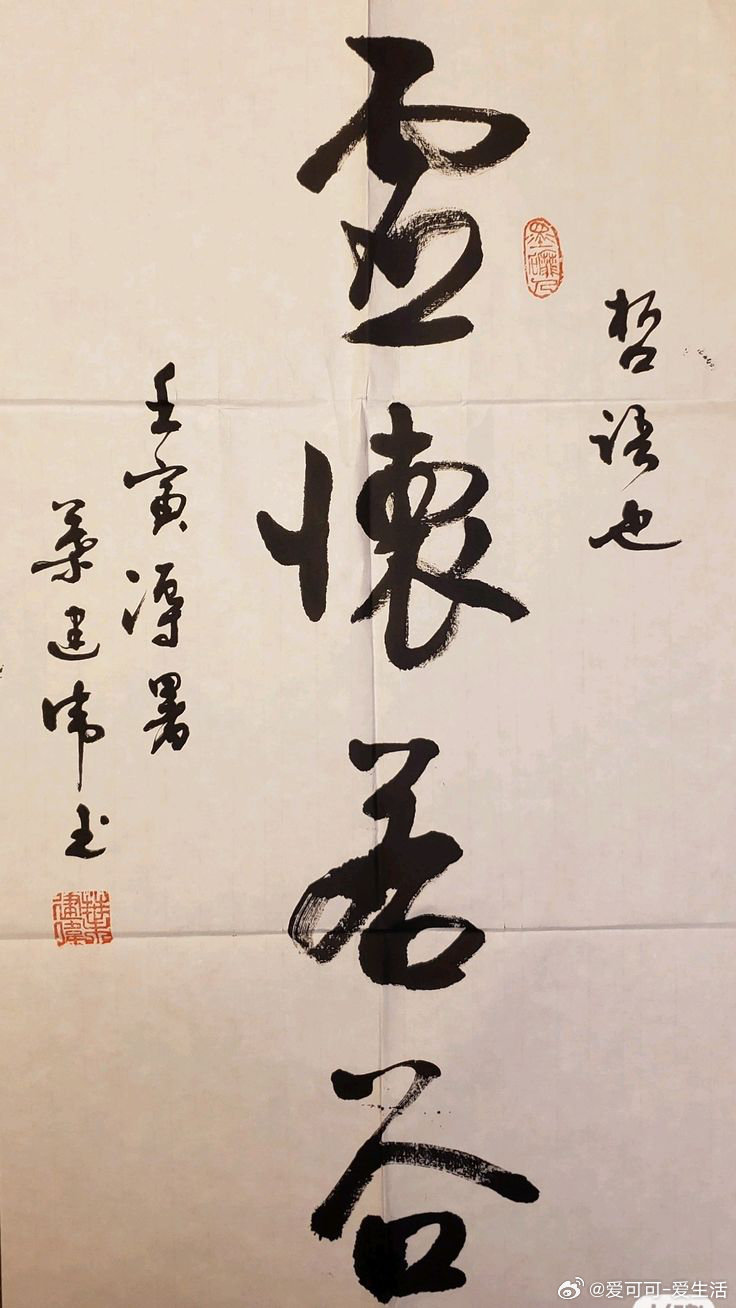 哲语也
虚懷若谷
壬寅溽暑
葉建书
@爱可可-爱生活